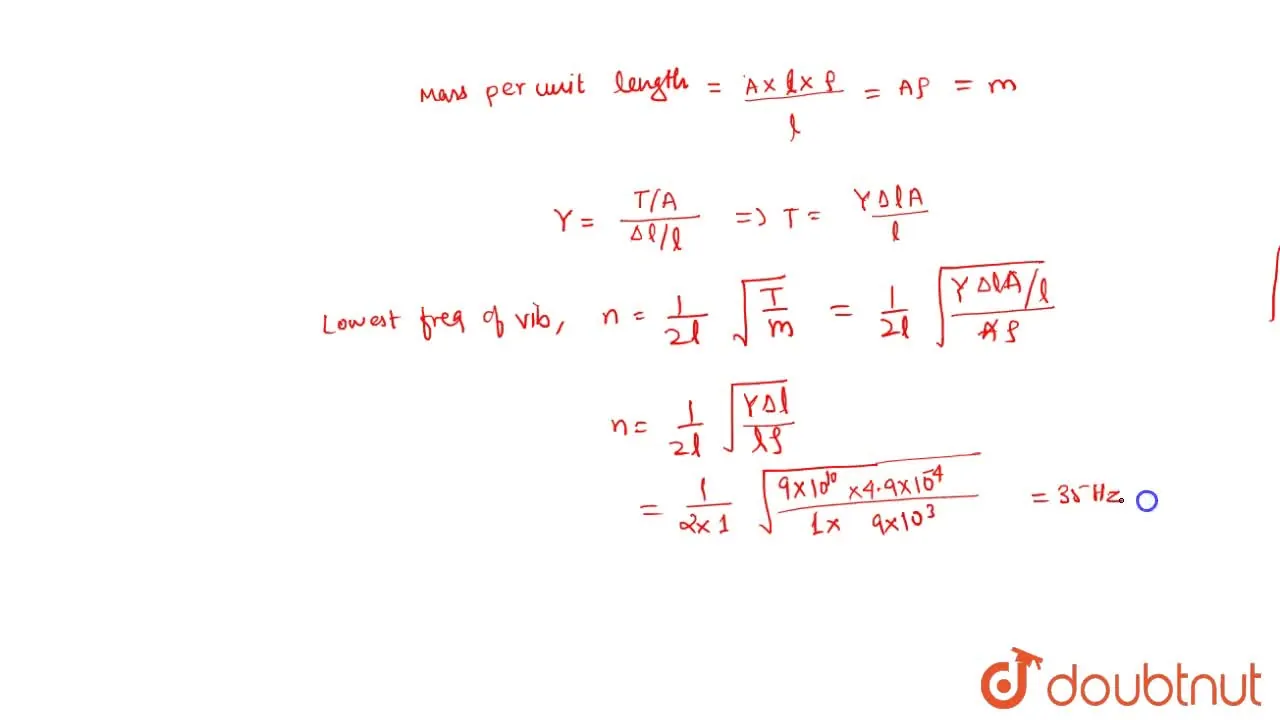 Mass per unit length = A × l × ρ / l = Aρ = m
Y = T/A / Δl/l => T = YΔlA / l
Lowest freq of vib, n = 1/2l √T/m = 1/2l √YΔlA/l / Aρ
n = 1/2l √YΔl / lρ
= 1 / 2×1 √9×10^10 ×4.9×10^-4 / 1× 9×10^3 = 35 Hz
doubtnut